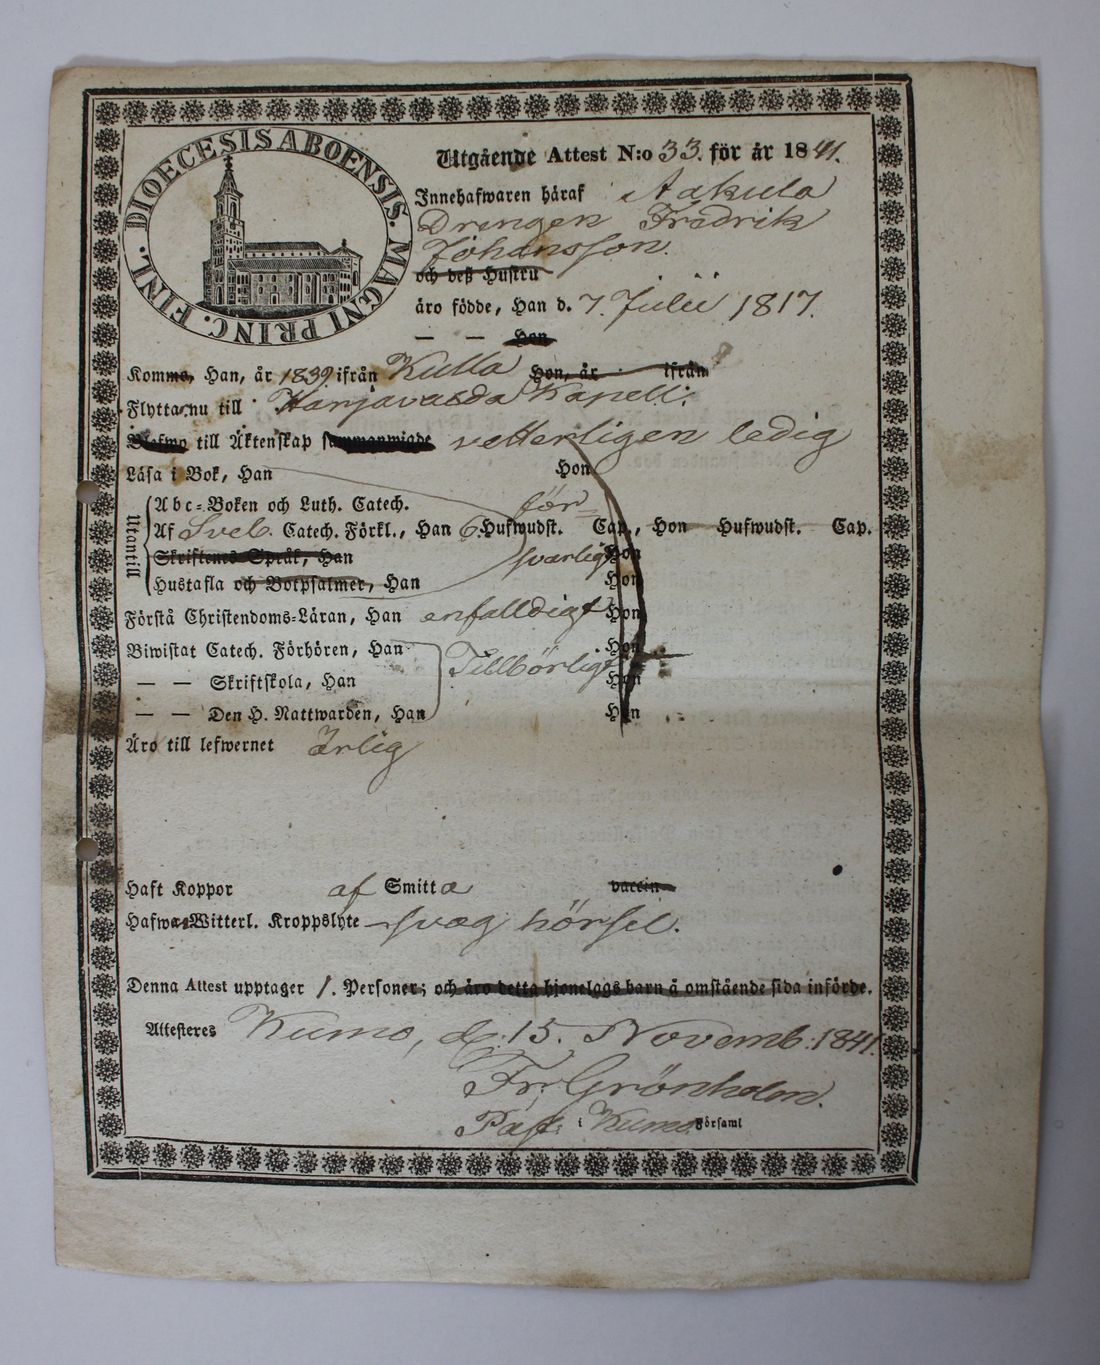 DIOECESIS ABOENSIS. MAGNI PRINC. FINL.
Utgående Attest N:o 33. för år 1841.
Innehafwaren häraf Aakula
Drengen Fredrik
Johansson.
och deß Hustru
äro födde, Han d. 7. Julii 1817.
— — Hon
Komme, Han, år 1839. ifrån Kulla Hon, år ifrån
Flyttar nu till Harjavalda Kapell.
till Äktenskap vetterligen ledig
Läsa i Bok, Han Hon
Utantill
Abc-Boken och Luth. Catech. för=
Af Sveb. Catech. Förkl., Han 6. Hufwudst. Cap., Hon Hufwudst. Cap.
Skriftenes Språk, Han svarligt Hon
Hustafla och Botpsalmer, Han Hon
Förstå Christendoms-Läran, Han enfalldigt Hon
Biwistat Catech. Förhören, Han Tillbörligt Hon
— — Skriftskola, Han Hon
— — Den H. Nattwarden, Han Hon
Äro till lefwernet Ärlig
Haft Koppor af Smitta vaccin
Hafwa Witterl. Kroppslyte svag hörsel.
Denna Attest upptager 1. Personer; och äro detta hjonelags barn å omstående sida införde.
Attesteres Kumo, d. 15. Novemb. 1841.
Fr. Grönholm.
Past. i Kumo Församl